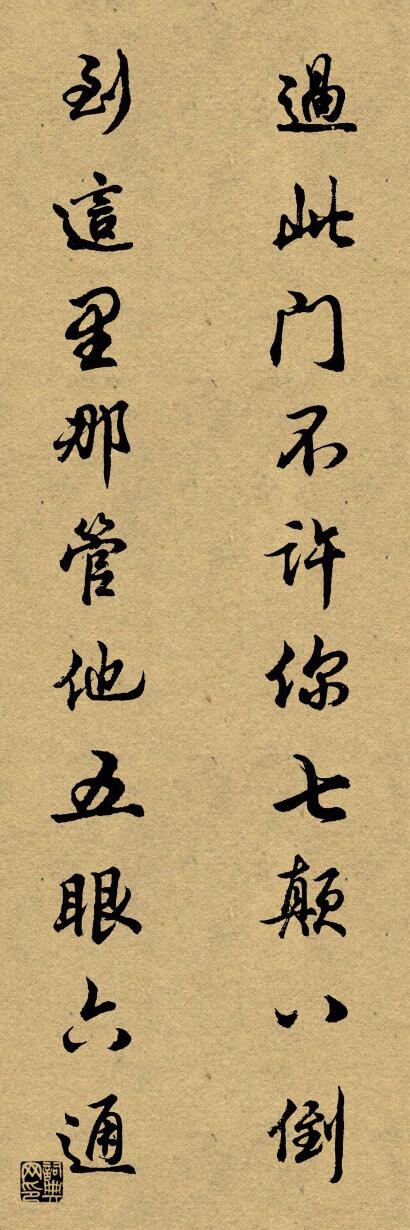 過此门不许你七颠八倒
到這里那管他五眼六通
詞典网印